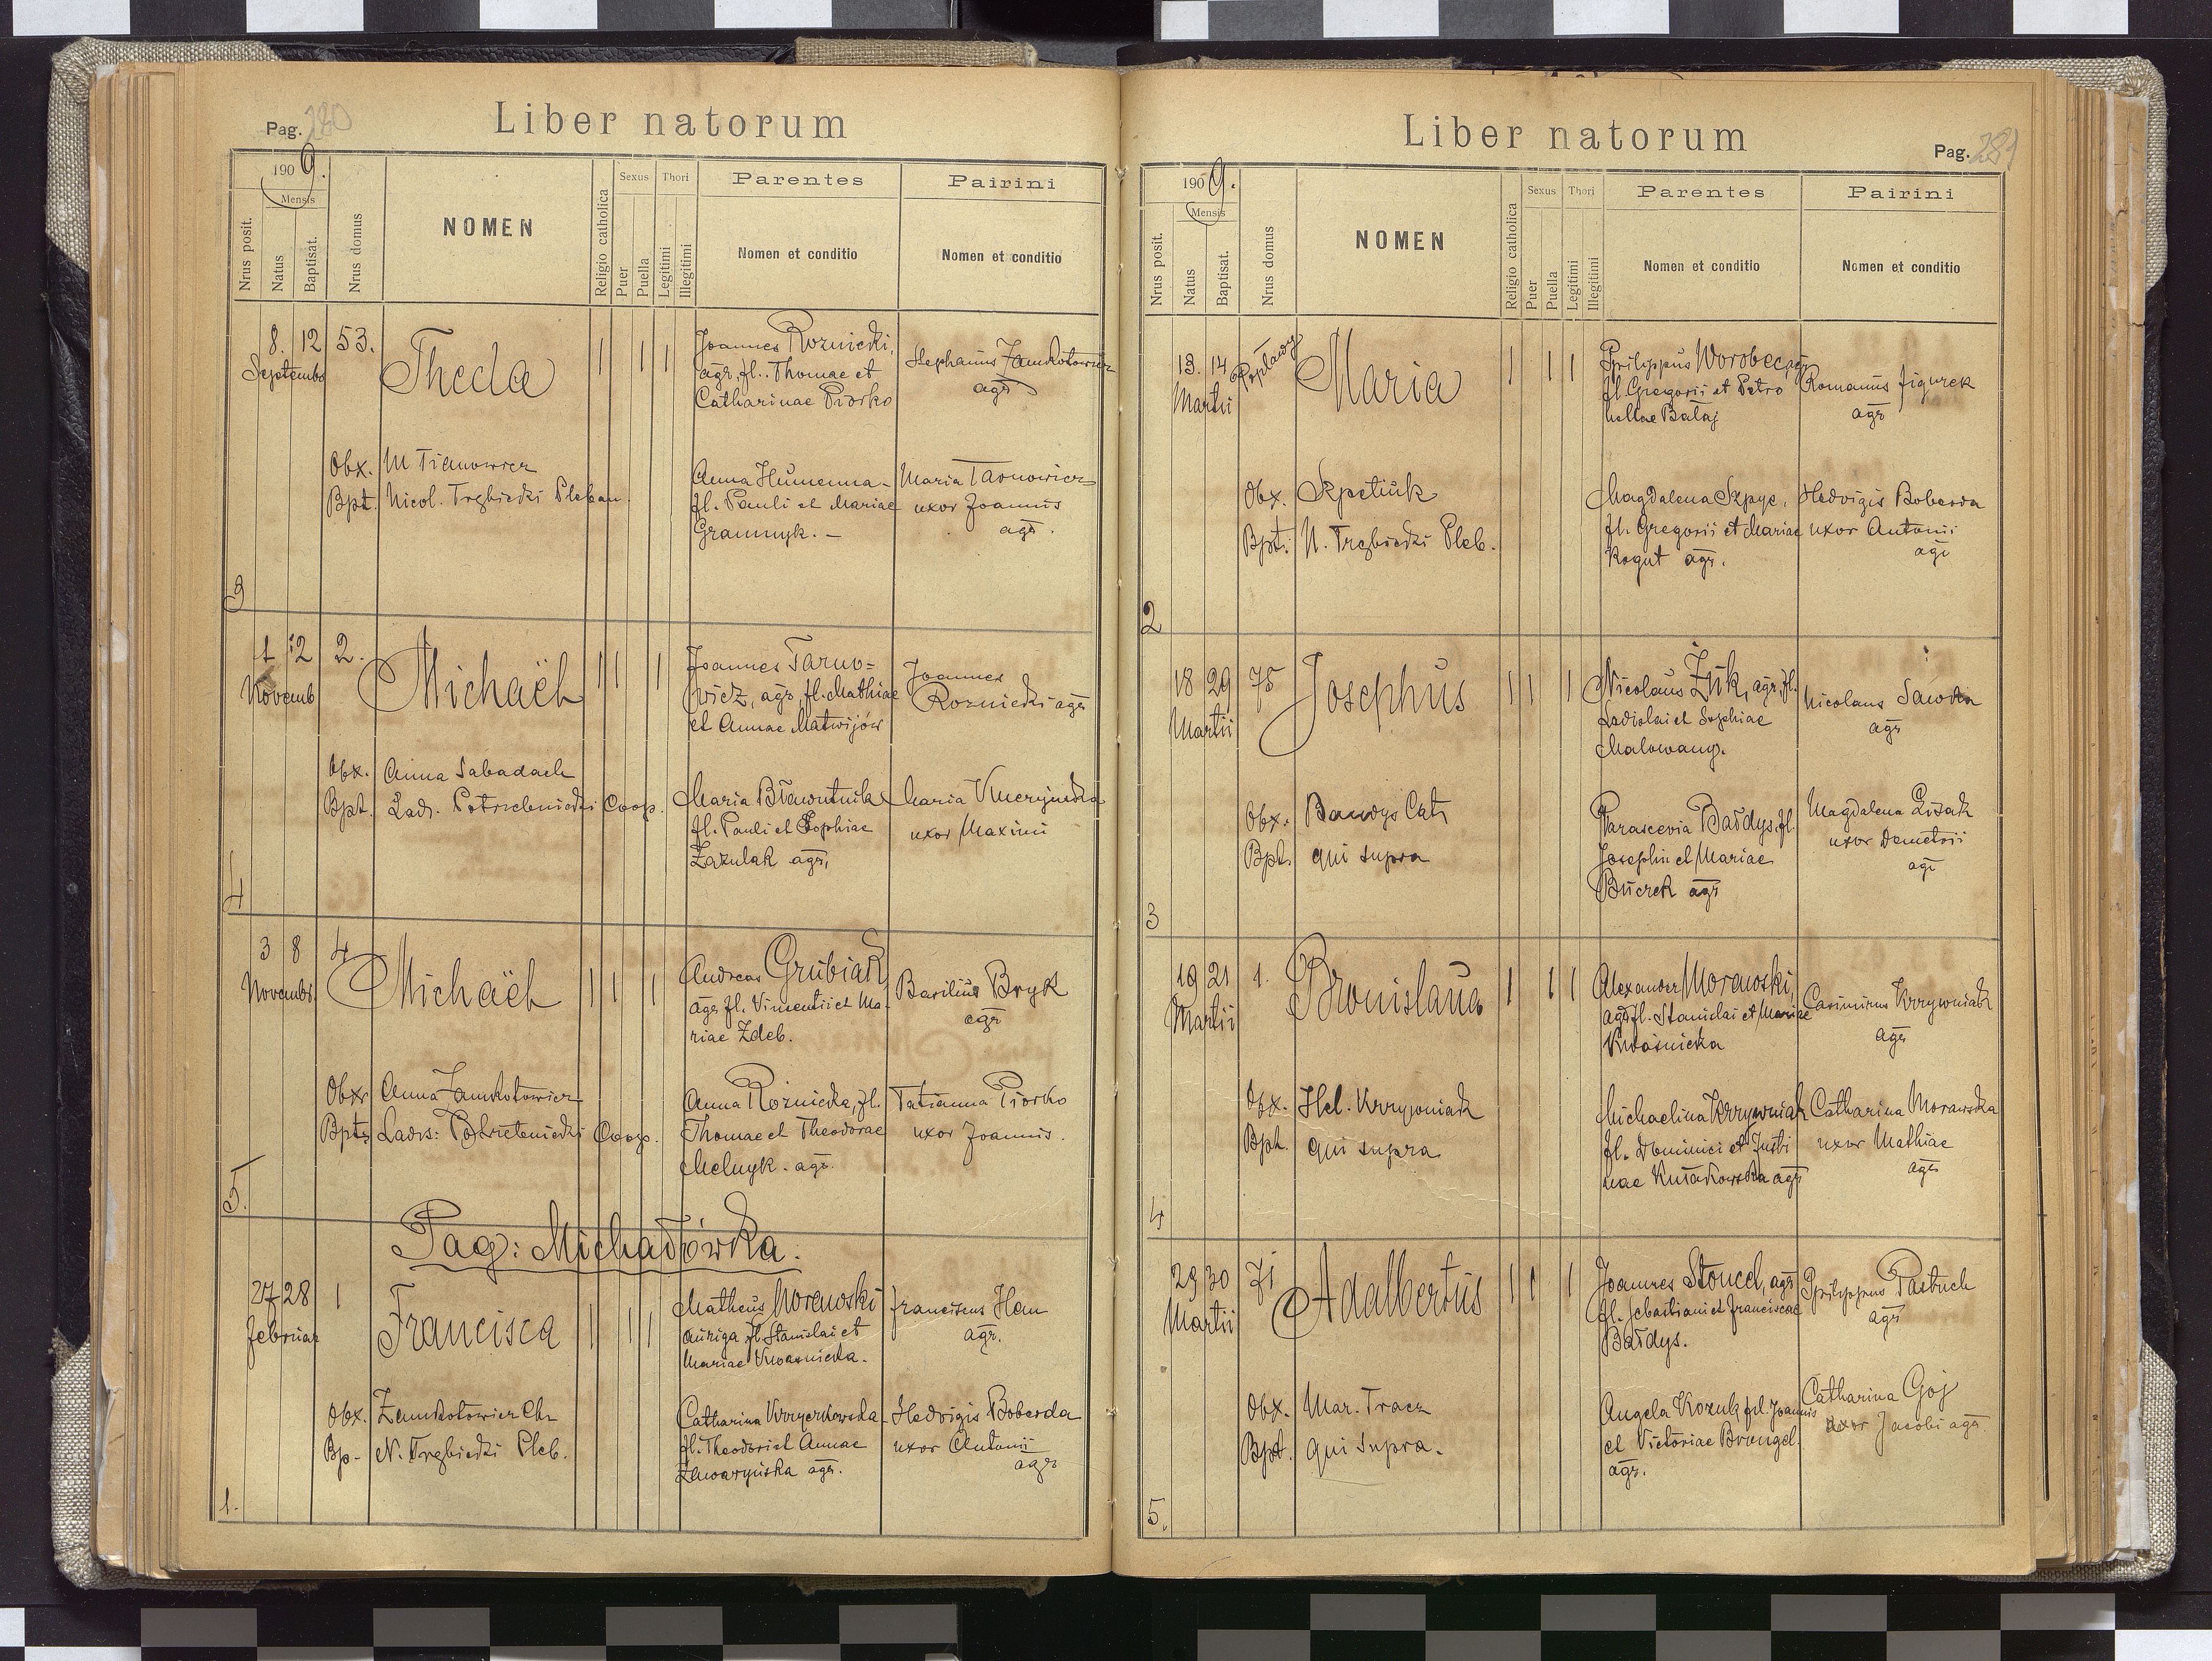 Pag. 280
Liber natorum
1909.
Mensis
Nrus posit.
Natus
Baptisat.
Nrus domus
NOMEN
Religio catholica
Sexus
Puer
Puella
Thori
Legitimi
Illegitimi
Parentes
Nomen et conditio
Pairini
Nomen et conditio
3
8. 12 53.
Septembr
Thecla
1 1 1
Joannes Roznicki,
agr. fl. Thomae et
Catharinae Piorko
Stephanus Zamkotowicz
agr
Obx.
Bpt. Nicol. Trzbicki Pleban.
Anna Humenna
fl. Pauli et Mariae
Gramnyk. –
Maria Tarnowicz
uxor Joannis
agr.
4
1 12 2.
Novemb
Michaël
1 1 1
Joannes Tarno=
wicz, agr, fl. Mathiae
et Annae Matwijów
Joannes
Roznicki agr
Obx. Anna Sabadach
Bpt. Ladr. Potrzebnicki Coop.
Maria
fl. Pauli et Sophiae
Zazulak agr,
Maria
uxor Maximi
5.
3 8 4
Novembr.
Michaël
1 1 1
Andreas Grubiak
agr fl. Vincentii et Ma-
riae Zdeb.
Basilius Bryk
agr
Obx Anna Zamkotowicz
Bpt. Ladrs: Coop.
Anna Roznicka, fl.
Thomae et Theodorae
Melnyk. agr.
Tatianna Piorko
uxor Joannis.
Pag: Michałówka.
1.
27 28 1
Februar
Francisca
1 1 1
Matheus Morawski
auriga fl. Stanislai et
Mariae Kwasnicka.
Franciscus Han
agr.
Obx. Zamkotowicz
Bp- N. Trzbicki Pleb.
Catharina Krzyczkowska
fl. Theodori et Annae
agr.
Hedvigis Boberda
uxor Antonii
agr
Liber natorum
Pag. 281
1909.
Mensis
Nrus posit.
Natus
Baptisat.
Nrus domus
NOMEN
Religio catholica
Sexus
Puer
Puella
Thori
Legitimi
Illegitimi
Parentes
Nomen et conditio
Pairini
Nomen et conditio
2
13. 14 Popławy
Martii
Maria
1 1 1
Philippus Worobec, agr
fl. Gregorii et Petro
nellae Bałaj
Romanus Figurek
agr
Obx. Szpetiuk
Bpt. N. Trzbicki Pleb.
Magdalena Szpyc,
fl. Gregorii et Mariae
Kogut agr.
Hedvigis Boberda
uxor Antonii
agr
3
18 29 75
Martii
Josephus
1 1 1
Nicolaus Żuk, agr, fl.
Ladislai et Sophiae
Malowany.
Nicolaus Sawka
agr
Obx. Bardys Cath
Bpt. qui supra
Parascevia Bardys, fl.
Josephi et Mariae
Burek agr
Magdalena
uxor Demetrii
agr
4
19 21 1.
Martii
Bronislaua
1 1 1
Alexander Morawski,
agr, fl. Stanislai et Mariae
Kwaśnicka
Casimirus Krzywniak
agr
Obx. Hel. Krzywniak
Bpt. qui supra
Michaelina Krzywniak
fl. Dominici et Justi
nae Kułakowska agr
Catharina Morawska
uxor Mathiae
agr
5.
29 30 71
Martii
Adalbertus
1 1 1
Joannes Stoncel, agr
fl. Sebastiani et Franciscae
Bardys.
Philippus Pastuch
agr
Obx. Mar. Tracz
Bpt. qui supra.
Angela Kozuk, fl. Joannis
et Victoriae Brongel.
agr.
Catharina Goj
uxor Jacobi agr.